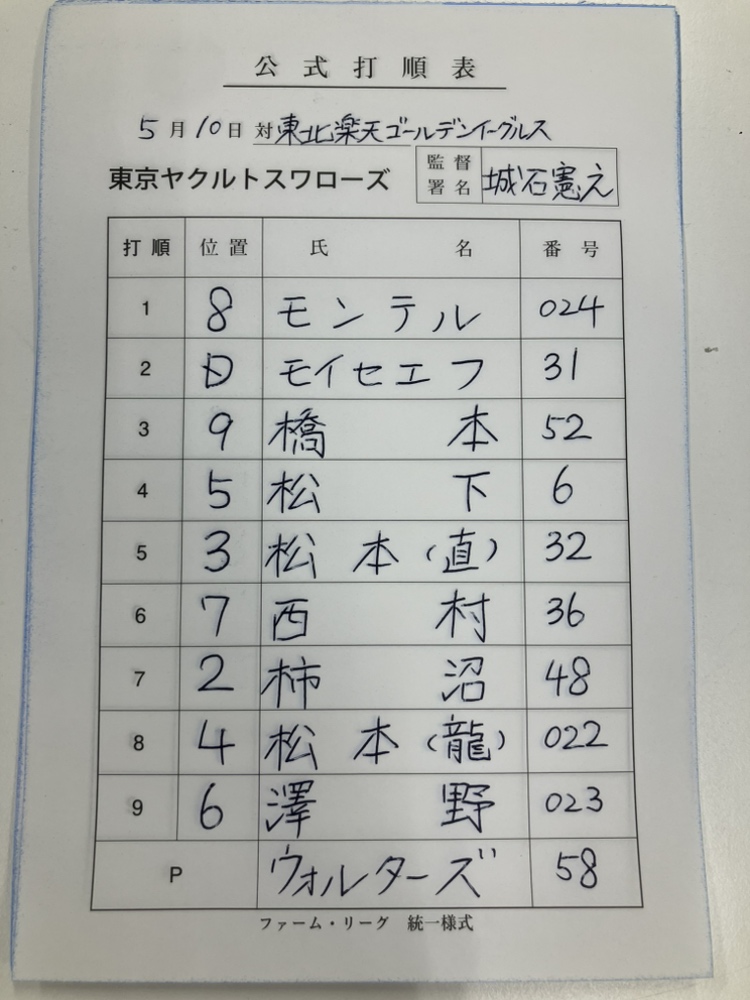 公式打順表
5月10日 対 東北楽天ゴールデンイーグルス
東京ヤクルトスワローズ 監督署名 城石憲之
打順 位置 氏名 番号
1 8 モンテル 024
2 D モイセエフ 31
3 9 橋本 52
4 5 松下 6
5 3 松本(直) 32
6 7 西村 36
7 2 柿沼 48
8 4 松本(龍) 022
9 6 澤野 023
P ウォルターズ 58
ファーム・リーグ 統一様式